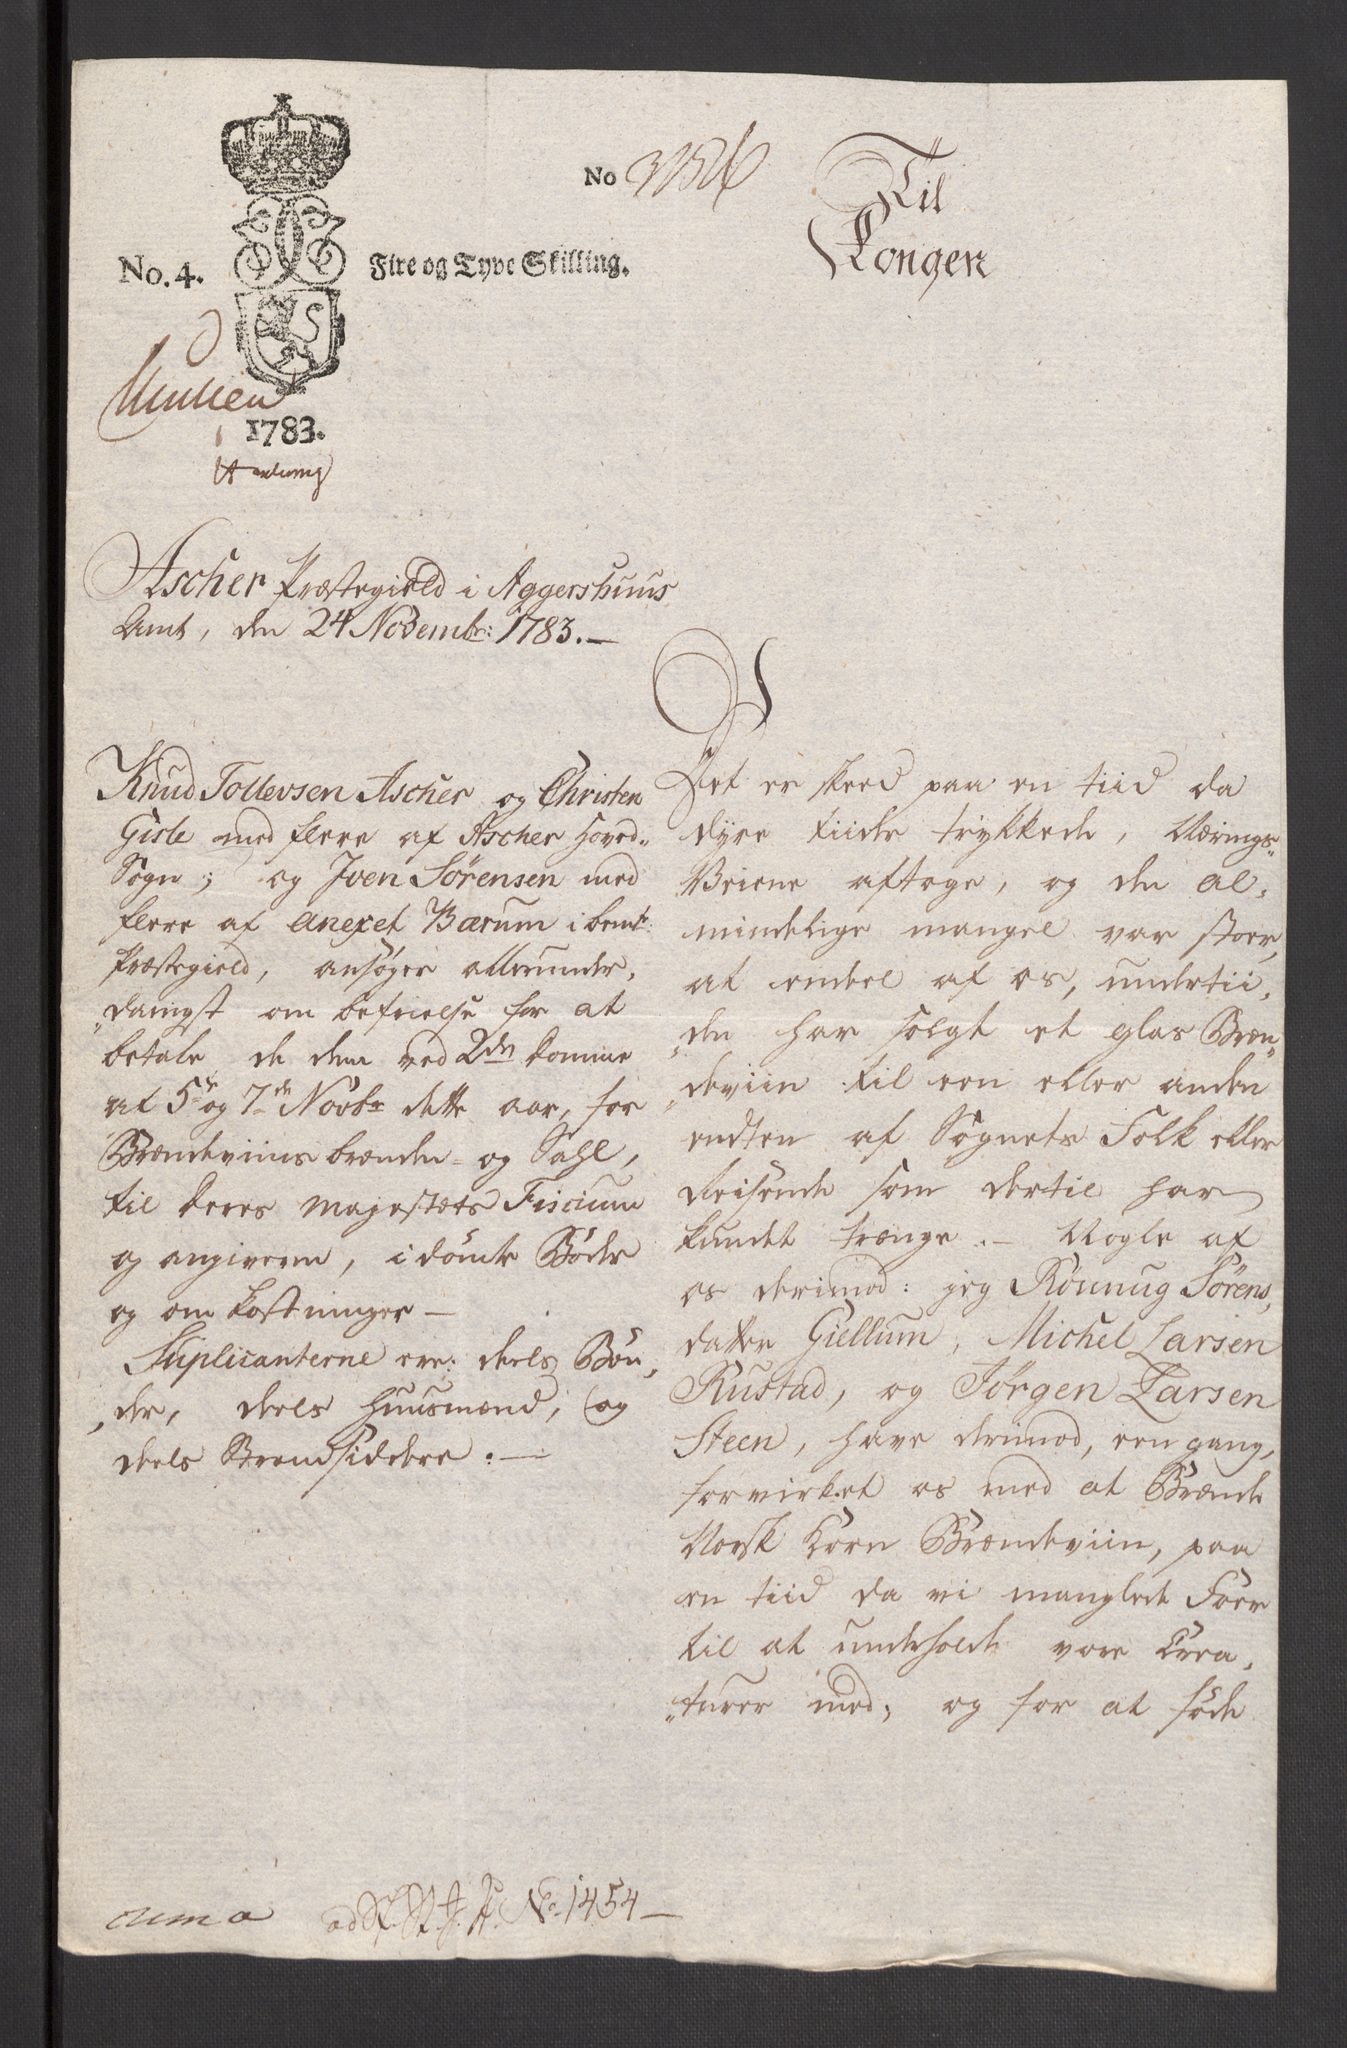 No
Til
Kongen
No. 4.
Fire og Tyve Skilling.
1783.
Ascher Præstegield i Aggershuus
Amt, den 24 Novembr: 1783. —
Knud Tollevsen Ascher og Christen
Gisle med flere af Ascher Hoved-
Sogn; og Iven Sørensen med
flere af Anexet Bærum i bemte:
Præstegield, ansøger allerunder,
„danigst om befrielse for at
betale de dem ved 2de Domme
af 5te og 7de Novbr dette aar, for
Brændeviins brænden- og Sahl,
til Deres Majestæts Fiscum
og angiveren, idømte Bøder
og omkostninger —
Suplicanterne ere: deels Bøn,
„der, deels Huusmænd, og
deels Strandsiddere. —
Det er skeed paa en tiid da
dyre tiider trykkede, Nærings-
Veiene aftoge, og den al,
mindelige mangel var stoer,
at endeel af os, undertii,
„den har solgt et glas Bræn„
„deviin til een eller anden
endten af Sognets Folk eller
Reisende som dertil har
kundet trænge. — Nogle af
os derimod: jeg Rönnug Sørens,
datter Giellum, Michel Larsen
Rustad, og Jørgen Larsen
Steen, have derimod, een gang,
forvirket os med at Brænde
Norsk Korn Brændeviin, paa
en tiid da vi manglede Foer
til at underholde vore Crea,
„turer med; og for at föde
No. 1454 —